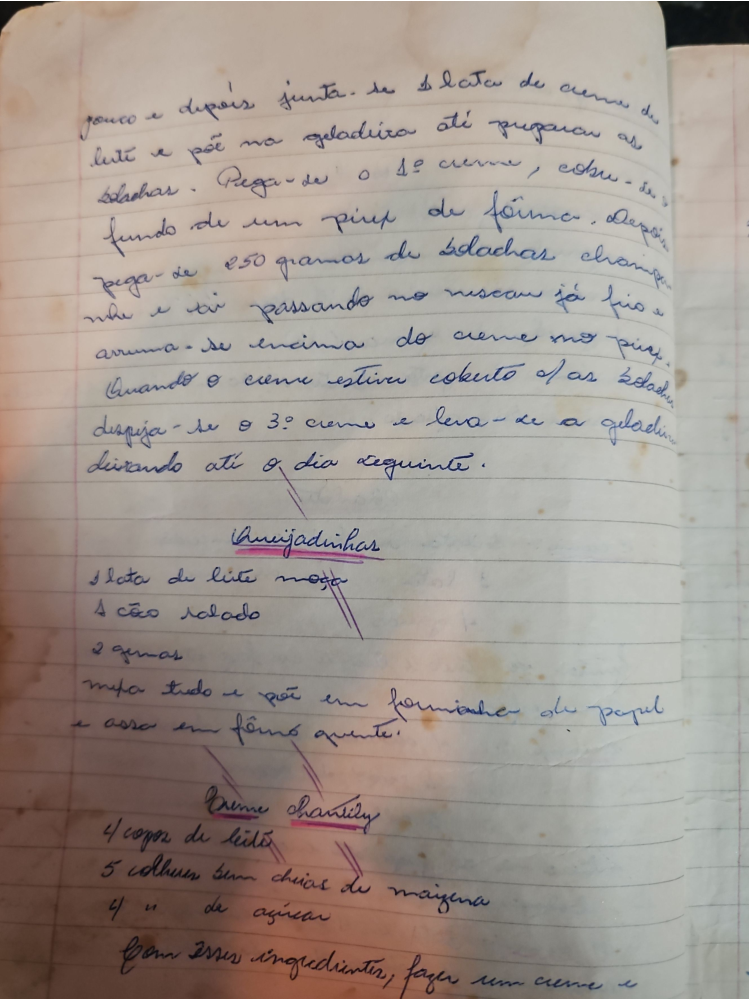 pouco e depois junta-se 1 lata de creme de
leite e põe na geladeira até preparar as
bolachas. Pega-se o 1º creme, cobre-se o
fundo de um pirex de fôrma. Depois
pega-se 250 gramos de bolachas champa-
nhe e vai passando no nescau já frio e
arruma-se encima do creme no pirex.
Quando o creme estiver coberto c/ as bolachas
despeja-se o 3º creme e leva-se a geladeira
deixando até o dia seguinte.
Queijadinhas
1 lata de leite moça
1 côco ralado
2 gemas
mexa tudo e põe em forminha de papel
e assa em fôrno quente.
Creme chantily
4 copos de leite
5 colheres bem cheias de maizena
4 " de açúcar
Com êsses ingredientes, fazer um creme e